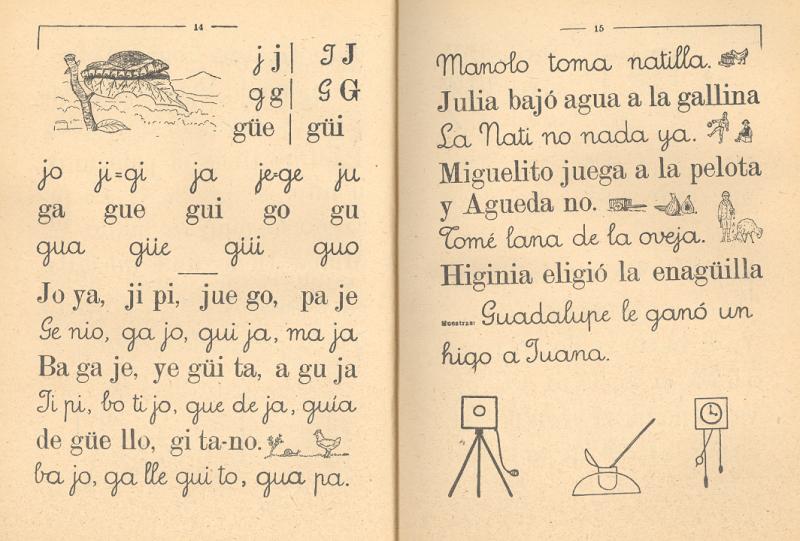 14
j j | J J
g g | G G
güe | güi
jo ji=gi ja je=ge ju
ga gue gui go gu
gua güe güi guo
Jo ya, ji pi, jue go, pa je
Ge nio, ga jo, gui ja, ma ja
Ba ga je, ye güi ta, a gu ja
Ji pi, bo ti jo, que de ja, guía
de güe llo, gi ta-no.
ba jo, ga lle gui to, gua pa.
15
Manolo toma natilla.
Julia bajó agua a la gallina
La Nati no nada ya.
Miguelito juega a la pelota
y Agueda no.
Tomé lana de la oveja.
Higinia eligió la enagüilla
Muestras: Guadalupe le ganó un
higo a Juana.